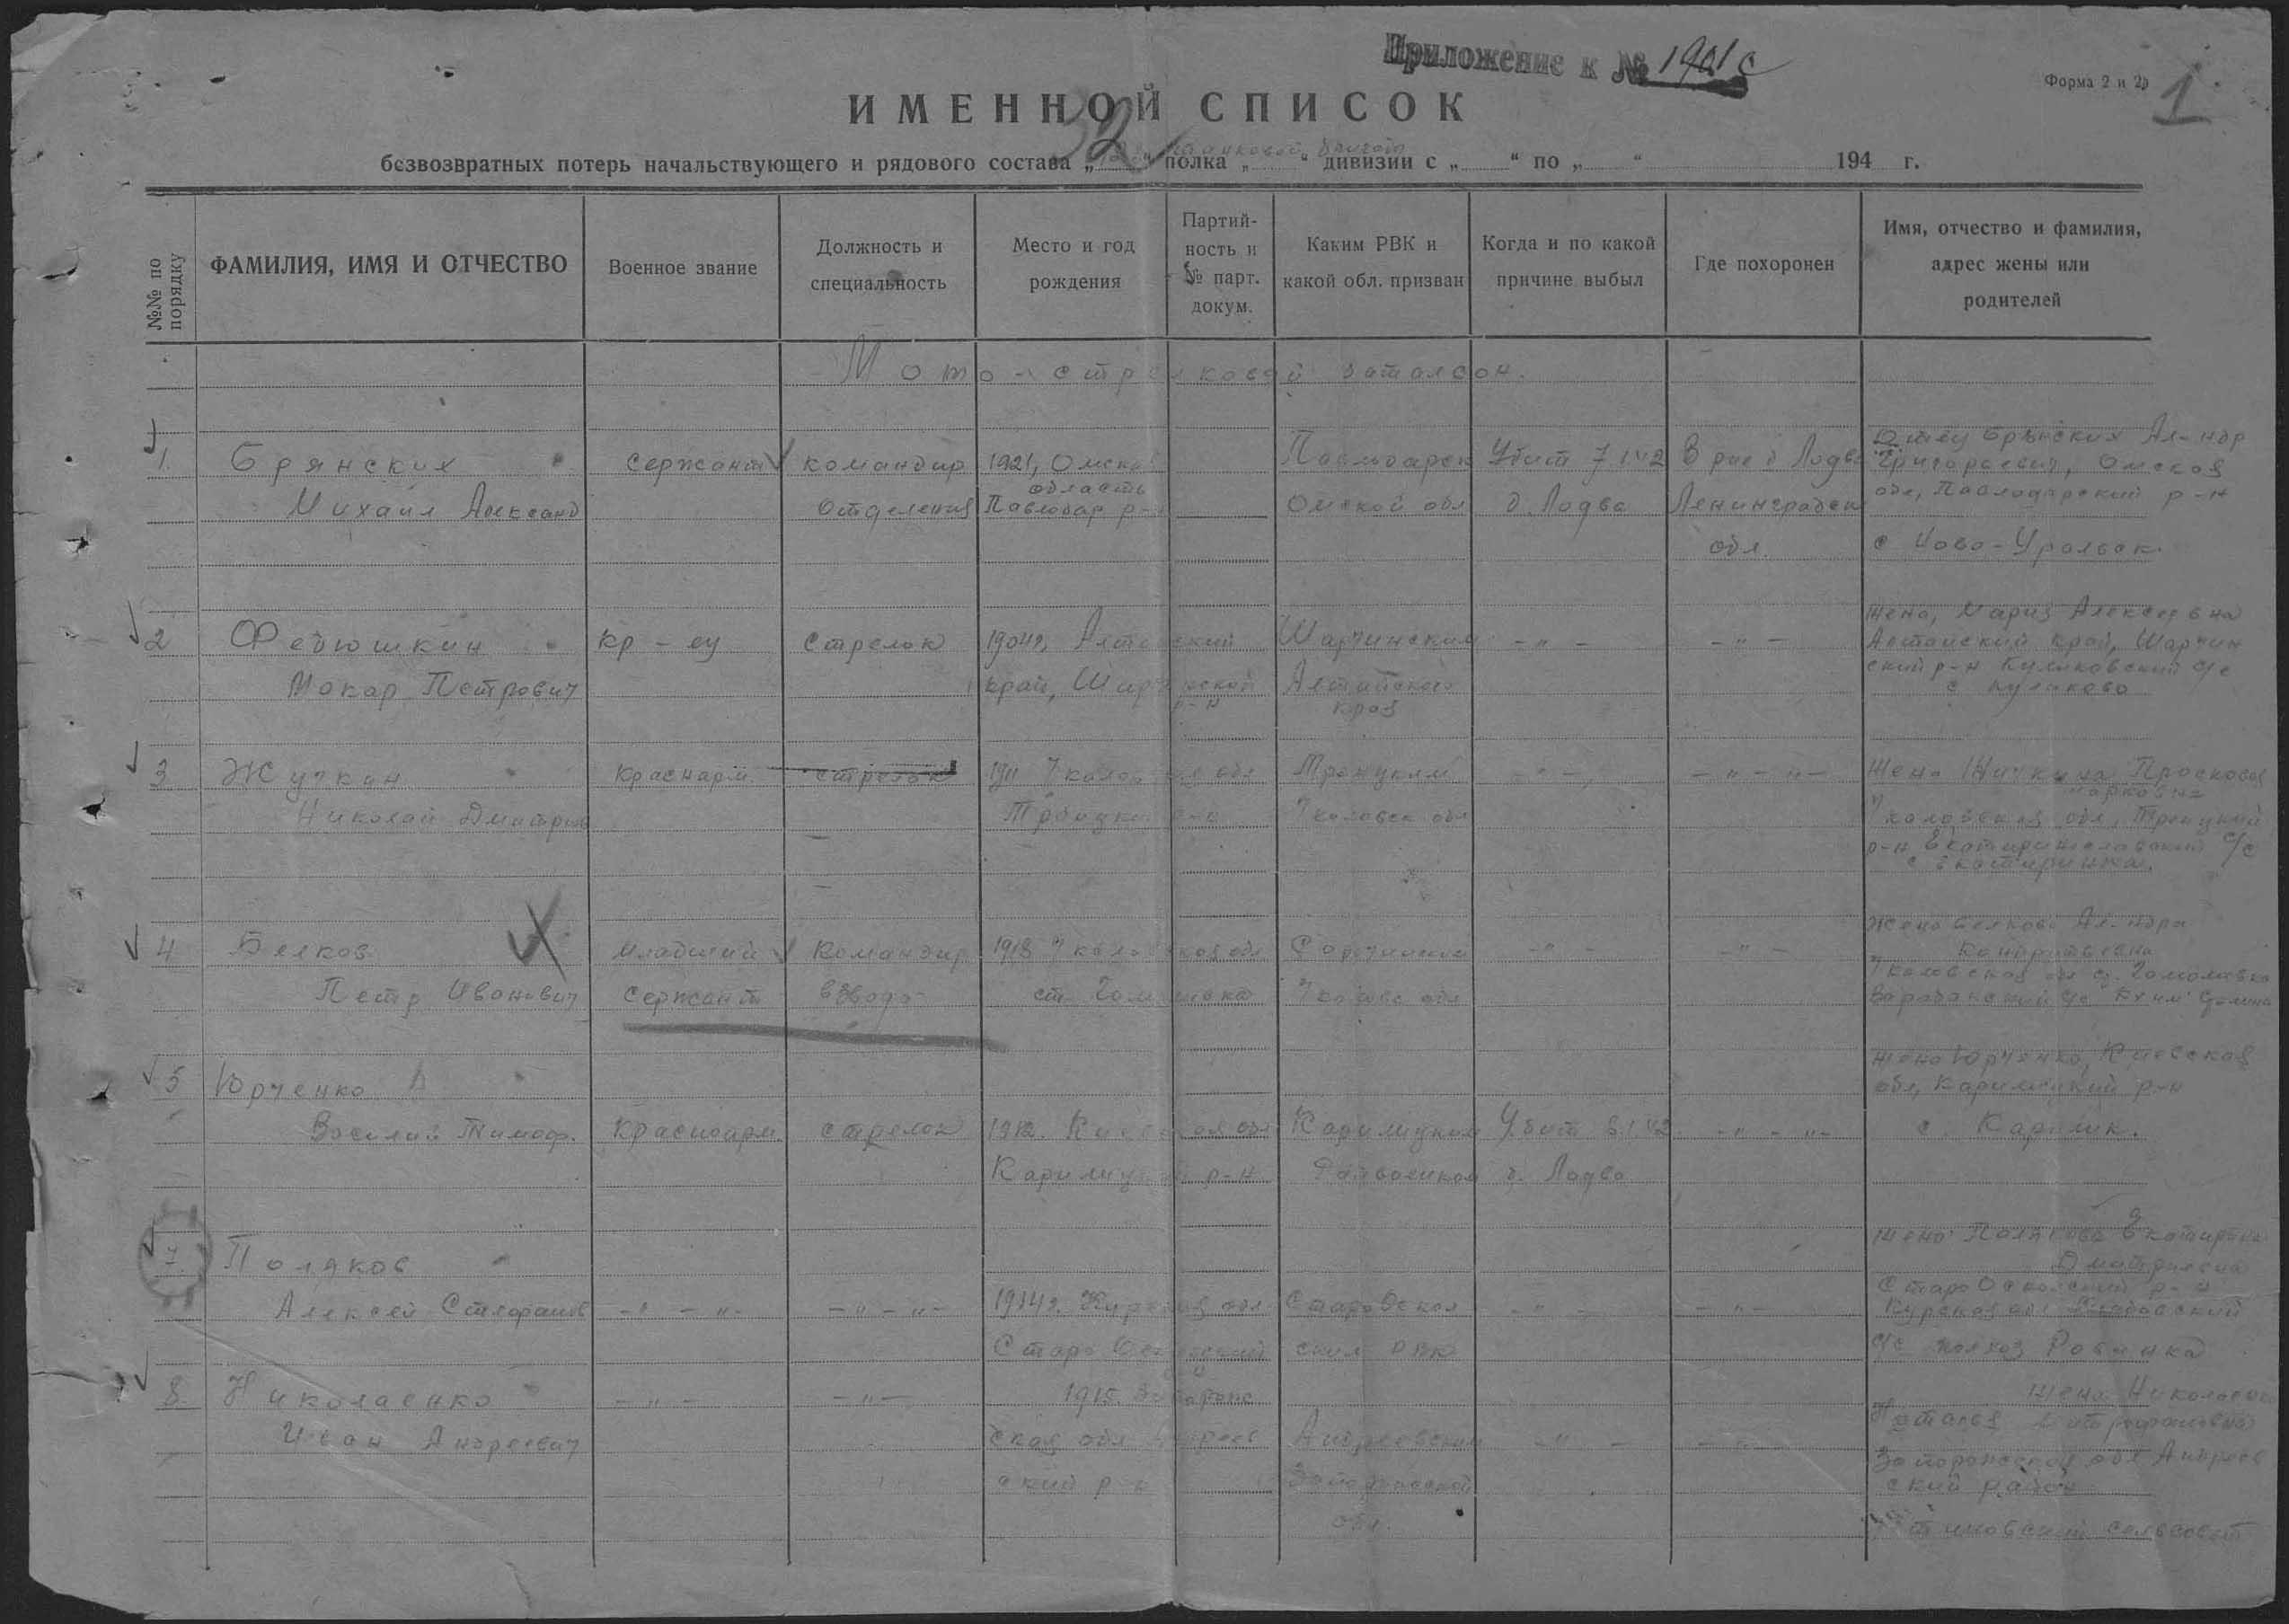 Приложение к № 1901с
Форма 2 и 2а
1
ИМЕННОЙ СПИСОК
безвозвратных потерь начальствующего и рядового состава „ “ полка „ “ дивизии с „ “ по „ “ 194 г.
№№ по порядку
ФАМИЛИЯ, ИМЯ И ОТЧЕСТВО
Военное звание
Должность и
специальность
Место и год
рождения
Партий-
ность и
№ парт.
докум.
Каким РВК и
какой обл. призван
Когда и по какой
причине выбыл
Где похоронен
Имя, отчество и фамилия,
адрес жены или
родителей
Мото-стрелковой батальон.
1. Брянских
Михаил Александ
сержант
командир
отделения
1921, Омская
область
Павлодар р-н
Павлодарск
Омской обл
Убит 7.1.42
д. Лодва
В рае д Лодва
Ленинградск
обл.
Отец Брянских Ал-ндр
Григорьевич, Омская
обл, Павлодарский р-н
с Ново-Уральск.
2 Федюшкин
Макар Петрович
кр-ец
стрелок
1904г, Алтайский
край,
р-н
Шарчинским
Алтайского
края
-"-
-"-
Жена, Мария Алексеевна
Алтайский край, Шарчин
ский р-н Куликовский с/с
с Куликово
3 Жучкин
Николай Дмитриев
краснарм.
стрелок
1911 Чкаловская обл
Троицкий р-н
Троицким
Чкаловск обл
-"-
-"-"-
Жена Прасковья
Марковна
Чкаловская обл, Троицкий
р-н с/с
4 Белков
Петр Иванович
младший
сержант
командир
взвода
1918 Чкаловская обл
ст.
Сорочинским
Чкаловс обл
-"-
-"-
Жена Белкова Ал-ндра
Чкаловская обл
5 Юрченко
Василий Тимоф.
Красноарм.
стрелок
1912. Киевская обл
р-н
Райвоенком
Убит 8.1.42
д. Лодва
-"-"-
Жена Юрченко, Киевская
обл, р-н
с
7. Поляков
Алексей Стефанов
-"-"-
-"-"-
1914г. Курская обл
Старо Оскольский
Старо Оскол
ским РВК
-"-
-"-
Жена Полякова Екатирина
Дмитриевна
Старо Оскольский р-н
Курская обл
с/с колхоз
8. Николаенко
Иван Андреевич
-"-
-"-
1915. Запорож
ская обл Андреев
ский р-н
Андреевским
Запорожской
обл.
-"-
-"-
Жена Николаенко
Наталья Митрофановна
Запорожская обл Андреев
ский район
сельсовет